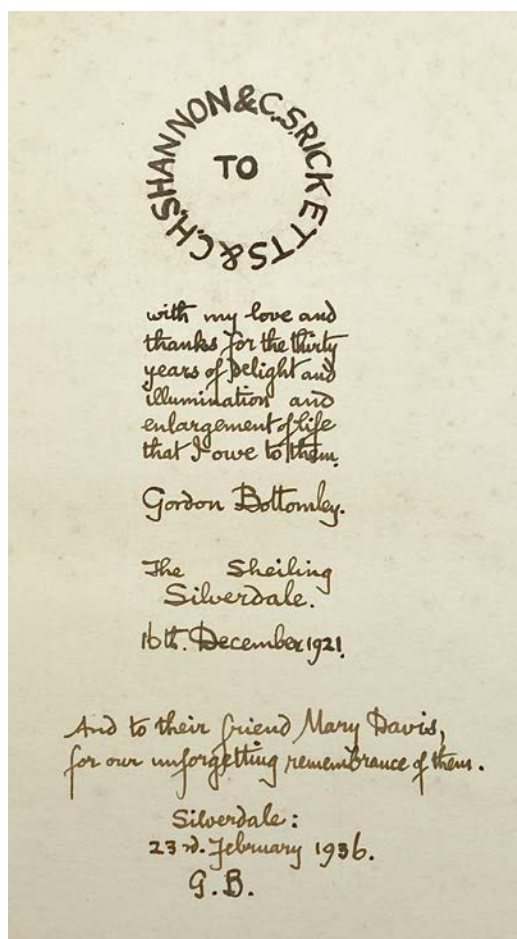 C.H.SHANNON & C.S.RICKETTS &
TO
with my love and
thanks for the thirty
years of Delight and
illumination and
enlargement of life
that I owe to them.
Gordon Bottomley.
The Sheiling
Silverdale.
16th. December 1921.
And to their friend Mary Davis,
for our unforgetting remembrance of them.
Silverdale:
23rd. February 1936.
G.B.